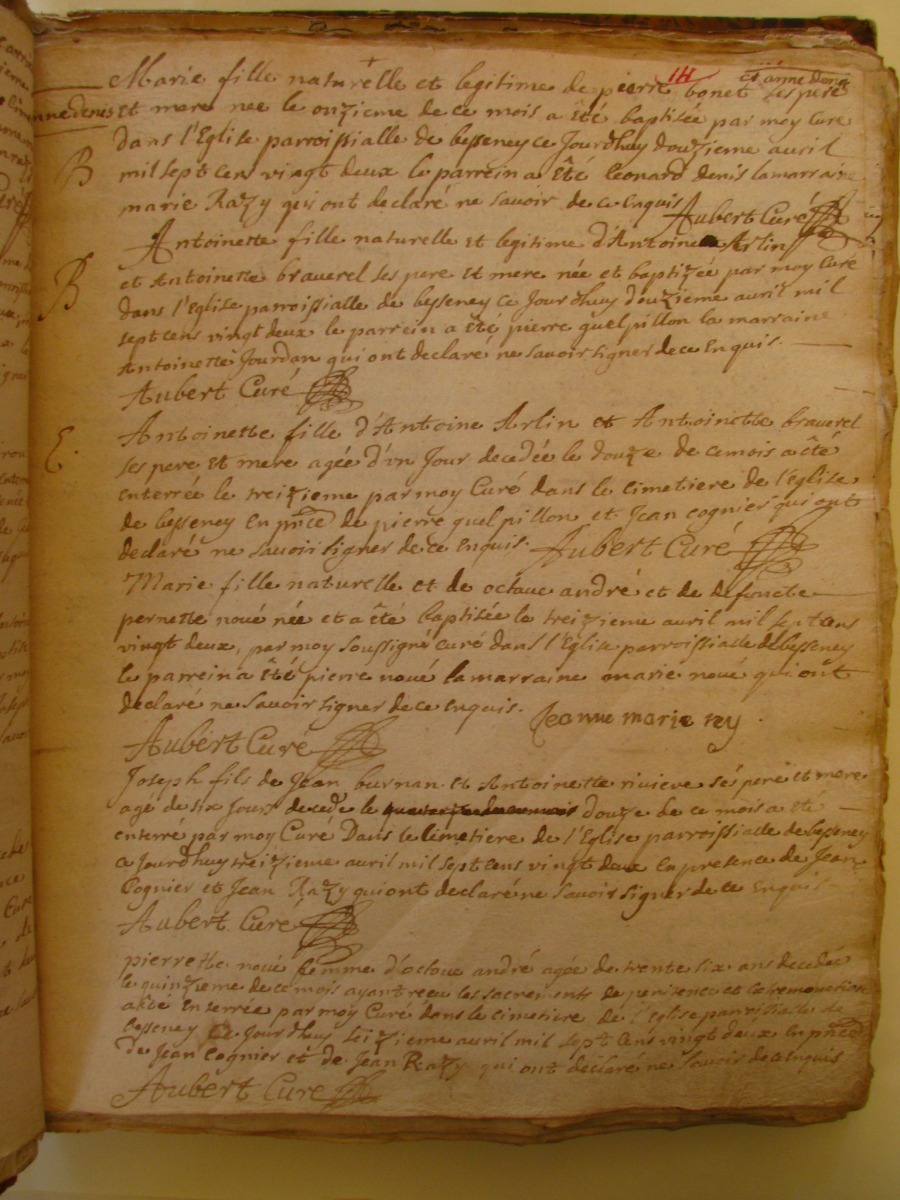 Marie fille naturelle et legitime de pierre bonet ses pere
14
et anne denis
anne denis
et mere nee le onzieme de ce mois a été baptisée par moy Curé
dans l'Eglise parroissialle de besseney ce Jourdhuy douzieme auril
B
mil sept cens vingt deux le parrein a Été Leonard denis la marraine
marie Razy qui ont declaré ne sauoir de ce Enquis Aubert Curé
Antoinette fille naturelle et legitime d'Antoine Arlin
et Antoinette brauerel ses pere et mere née et baptizée par moy Curé
B
dans l'Eglise parroissialle de besseney Ce Jourdhuy douzieme auril mil
sept cens vingt deux le parrein a Été pierre quelpillon la marraine
Antoinette Jourdan qui ont declaré ne sauoir signer de ce Enquis.
Aubert Curé
Antoinette fille d'Antoine Arlin et Antoinette brauerel
E.
ses pere et mere agée d'vn Jour decedée le douze de ce mois a été
enterrée le treizieme par moy Curé dans le cimetiere de l'église
de besseney En pnce de pierre quelpillon et Jean cognier qui ont
declaré ne sauoir signer de ce Enquis. Aubert Curé
Marie fille naturelle et de octaue andré et de defuncte
pernette noué née et a été baptisée le treizieme auril mil sept cens
vingt deux, par moy soussigné curé dans l'Eglise parroissialle de besseney
le parrein a Été pierre noué la marraine marie noué qui ont
declaré ne Sauoir signer de ce Enquis.
Jeanne marie rey.
Aubert Curé
Joseph fils de Jean burnan et Antoinette riuiere sés peré et mere
agé de six Jours decede le douze de ce mois a été
enterré par moy Curé Dans le Cimetiere de l'Eglise parroissialle de besseney
a Jourdhuy treizieme auril mil sept cens vingt deux En presence de Jean
Cognier et Jean Razy qui ont declaré ne sauoir signer de ce Enquis
Aubert Curé
pierrette noué femme d'octaue andré agée de trente six ans decedée
le quinzieme de ce mois ayant receu les sacrements de penitence et Extremeonction
a été enterrée par moy Curé dans le cimetiere de l'Eglise parroissialle de
besseney Ce Jourdhuy seizieme auril mil sept Cens vingt deux En pnce
de Jean Cognier et de Jean Razy qui ont déclaré ne sauoir de ce Enquis
Aubert Curé